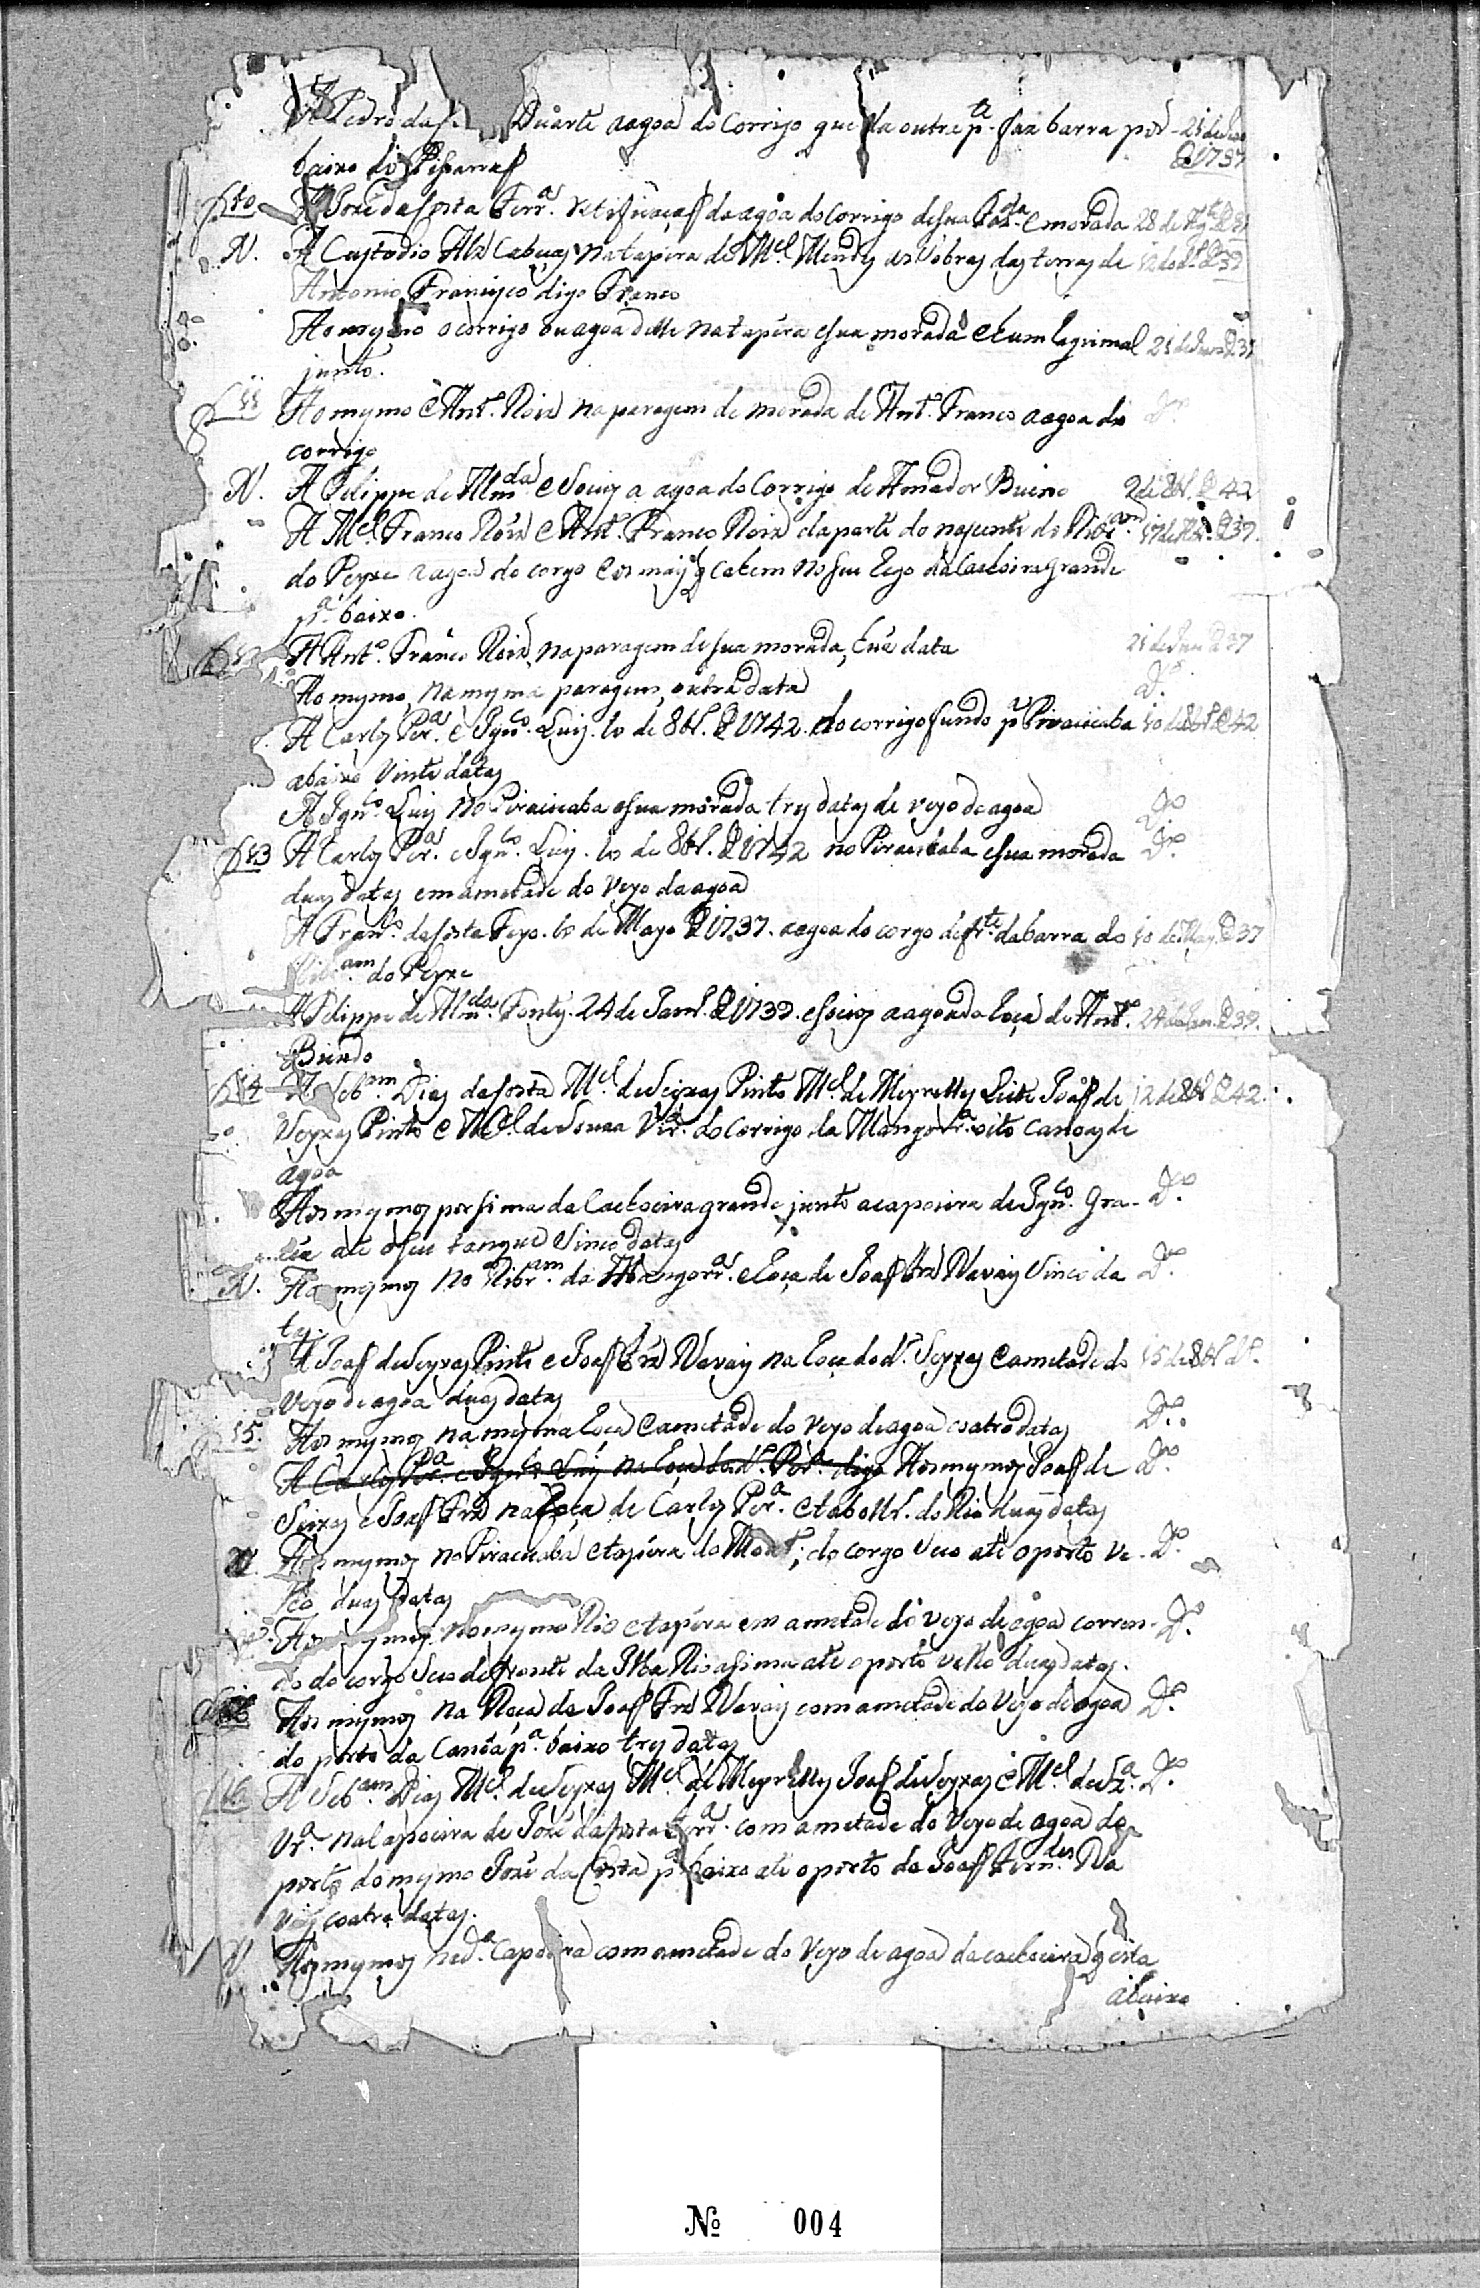 A Pedro da S. Duarte aagoa do Corrigo que da outra p.te faz barra por 21 de Jan.
baixo do Pisarraf de 1737
f 10 A Jozé da Costa Ferr.a retificaçaf da agoa do Corrigo de sua Faz.da e morada 28 de Ag.to
N. A Custodio Alz Cabuas na tapera de M.el Mendes as sobras das terras de
Antonio Francisco digo Franco
Ao mesmo o corrigo ou agoa delle na tapera e sua morada e hum lagrimal 21 de Jan. 37
junto.
f 11 Ao mesmo e Ant.o Roiz na paragem de morada de Ant.o Franco aagoa do D.o
corrigo
N. A Felippe de Alm.da e Socios a agoa do Corrigo de Amador Bueno 2 de 8br.o 42
A M.el Franco Roiz e Ant.o Franco Roiz da parte do nascente do Ribr.am 17 de 37.
do Peyxe aagoa do corgo e os mais q cahem no seu Lego da Cachoeira grande
p.a baixo.
f 12 A Ant.o Franco Roiz, na paragem de sua morada, hua data 21 de Jan 37
Ao mesmo, na mesma paragem, outra data D.o
A Carlos Per.a e Ign.co Luis. 10 de 8br.o 1742. do corrigo fundo p.a Piracicaba 10 de 8br.o 42
abaixo vinte datas
A Ign.co Luis no Piracicaba e sua morada tres datas de veyo de agoa D.o
f 13 A Carlos Per.a e Ign.co Luis. 10 de 8br.o 1742 no Piracicaba e sua morada D.o
duas datas em ametade do veyo da agoa
A Fran.co da Costa Feyo. 10 de Mayo 1737. aagoa do corgo defr.te da barra do 10 de May. 37
Rib.am do Peyxe
A Felippe de Alm.da Fontes. 24 de Janr.o 1739. e socios aagoa da Roça de Ant.o 24 de Jan. 39.
Buendo
f 14 A Seb.am Dias da Costa M.el de Seyxas Pinto M.el de Meyrelles Leite Joaf de 12 de 8br.o 42.
Seyxas Pinto e M.el de Souza Vr.a do Corrigo da Mangorr.a oito Canoas de
agoa
Aos mesmos por sima da Cachoeira grande junto a capoeira de Ign.co Gra- D.o
cia até o seu tanque Sinco datas
N. Aos mesmos no Ribr.am da Mangorr.a e Roça de Joaf Frz Navais Sinco da D.o
tas.
A Joaf de Seyxas Pinto e Joaf Frz Navais na Roça do d.o Seyxas e ametade do 15 de 8br.o d.o
veyo de agoa duas datas
15. Aos mesmos na mesma Roça e ametade do veyo de agoa coatro datas D.o
A Carlos Per.a e Ign.co Luis na Roça do d.o Per.a digo Aos mesmos Joaf de D.o
Seixas e Joaf Frz na Roça de Carlos Per.a do Rio duas datas
N. Aos mesmos no Piracicaba e tapera do do corgo Seco até o porto ve- D.o
lho duas datas
Aos mesmos no mesmo Rio e tapera em ametade do veyo de agoa corren- D.o
do do corgo Seco defronte da Ilha Rio asima até o porto velho duas datas.
Aos mesmos na Roça de Joaf Frz Navais com ametade do Veyo de agoa D.o
do porto da Canoa p.a baixo tres datas
f 16 A Seb.am Dias M.el de Seyxas M.el de Meyrelles Joaf de Seyxas e M.el de Sz.a D.o
Vr.a na Capoeira de Jozé da Costa Ferr.a com ametade do Veyo de agoa do
porto do mesmo Jozé da Costa p.a baixo até o porto de Joaf Fern.des Na
vais coatro datas.
N Aos mesmos na d.a Capoeira com ametade do Veyo de agoa da cachoeira q esta
abaixo
No 004